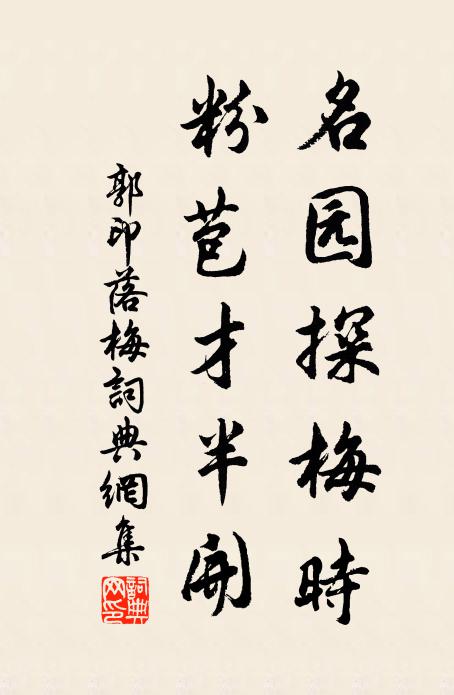 名园探梅時
粉苞才半開
郭印落梅詞典網集
詞典网印